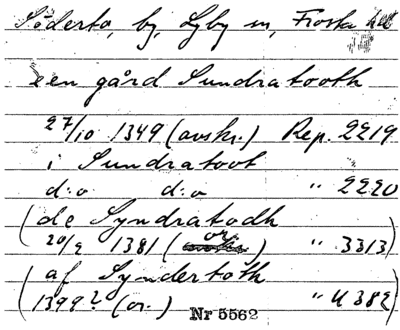 Söderto, by, Lyby sn, Frosta hd
een gård Sundratooth
27/10 1349 (avskr.) Rep. 2219
i Sundratoot
d:o d:o " 2220
(de Syndratodh
20/2 1381 (or) " 3313)
(af Syndertoth
1399? (or.) " U 382)
Nr 5562